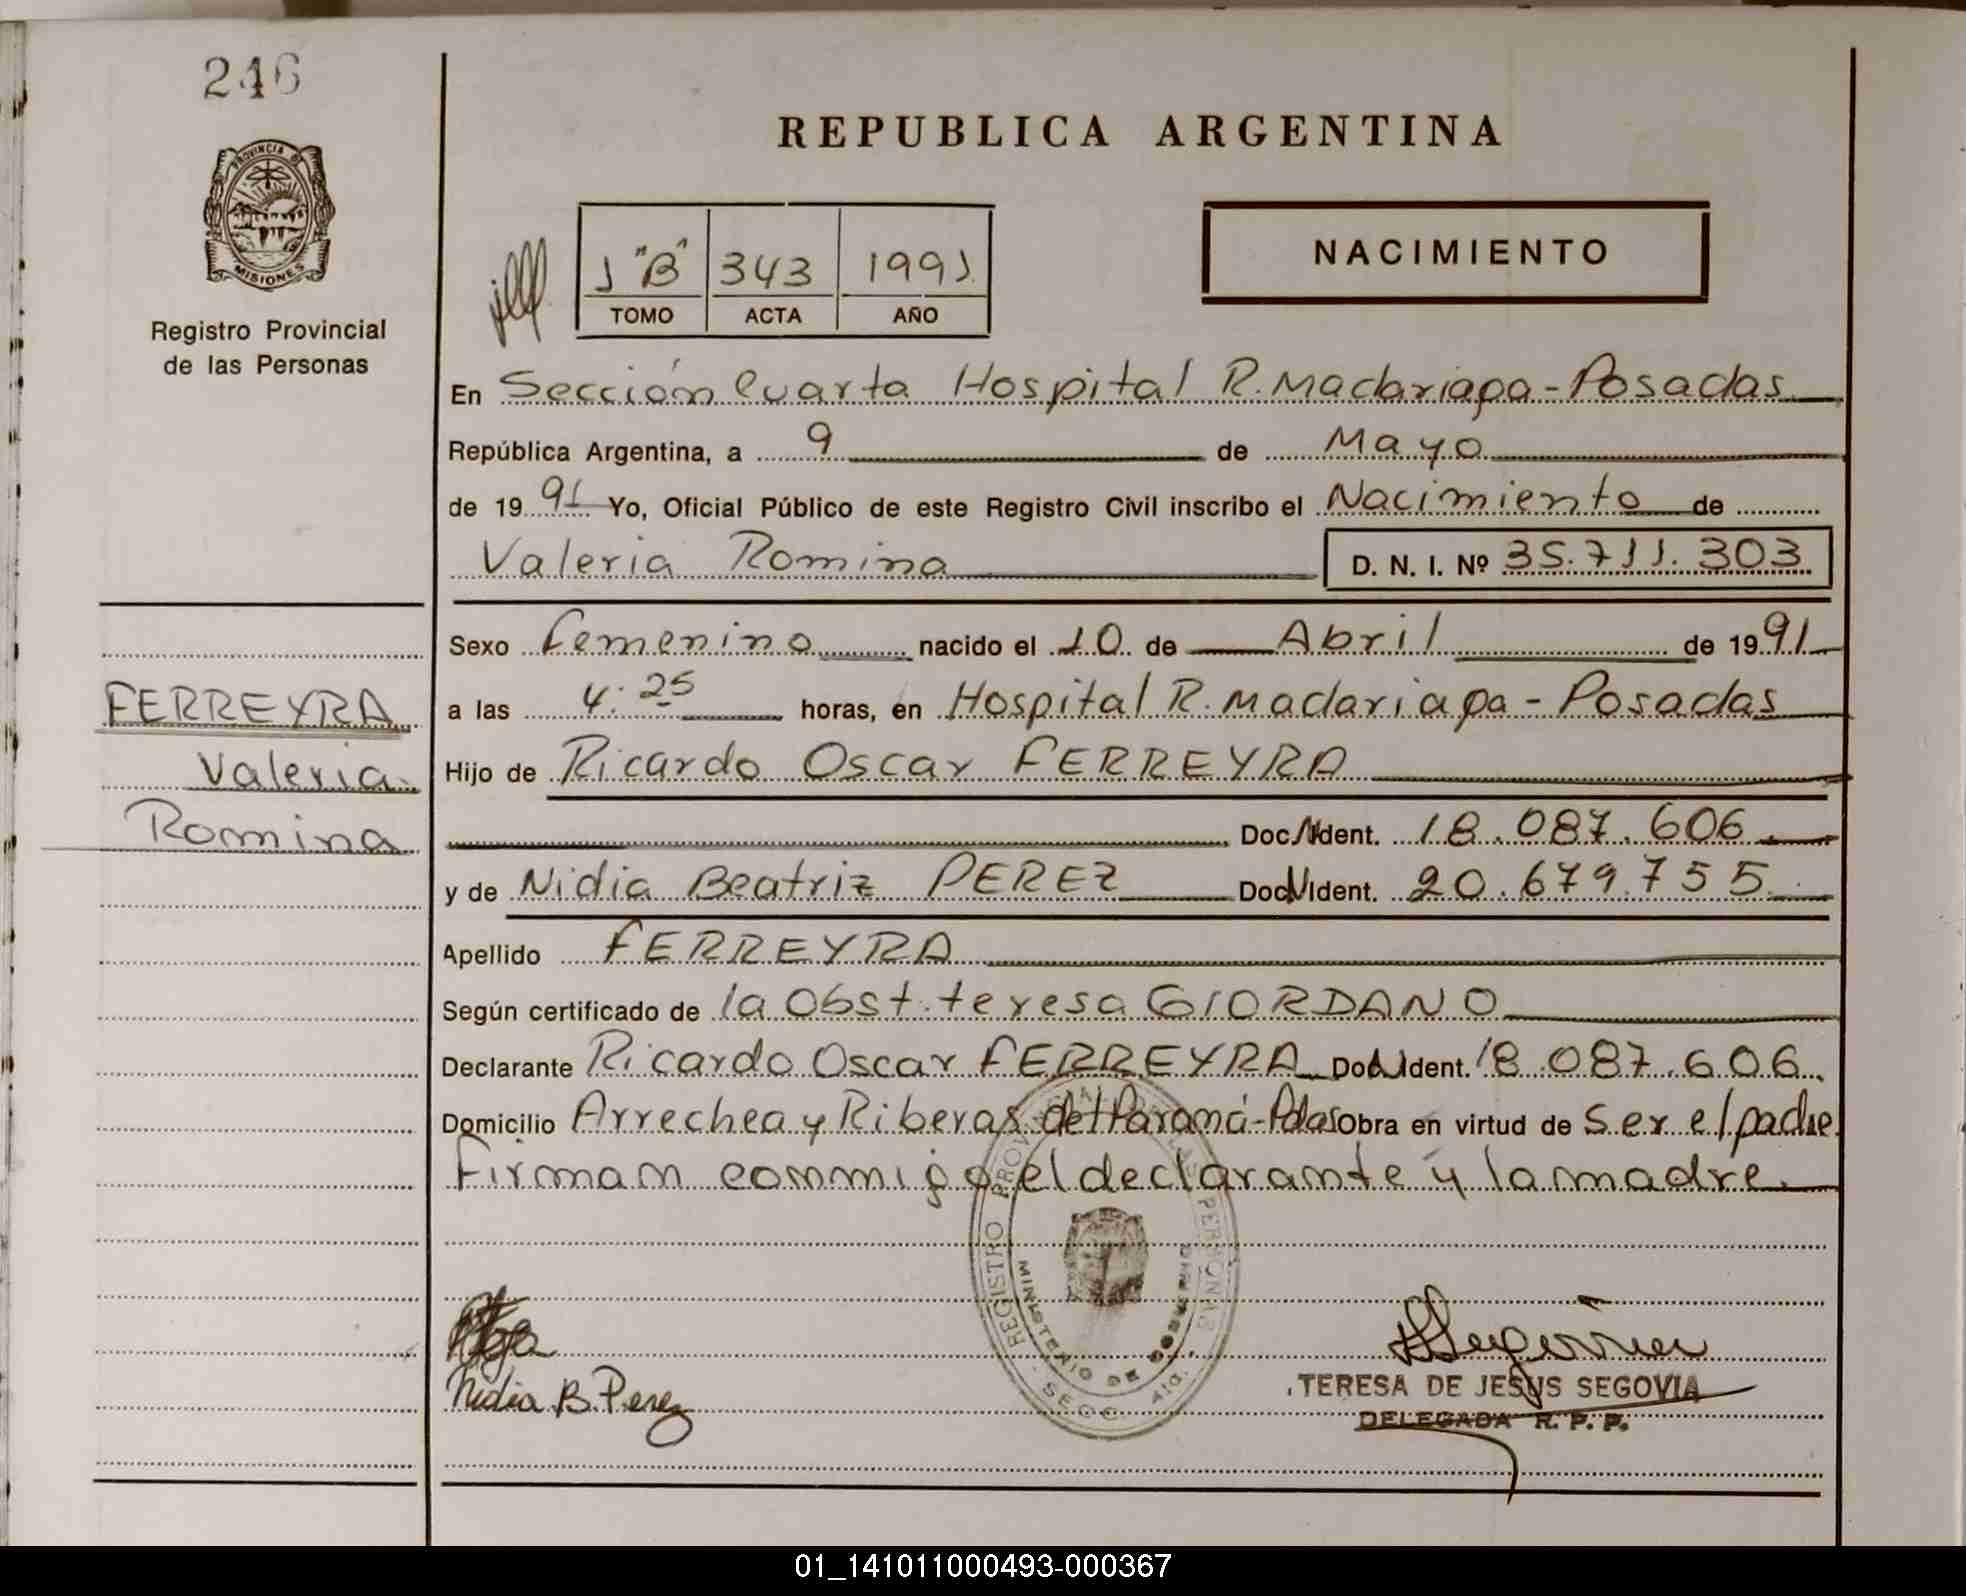 246
PROVINCIA DE
MISIONES
Registro Provincial
de las Personas
REPUBLICA ARGENTINA
1 "B" 343 1991
TOMO ACTA AÑO
NACIMIENTO
En Sección Cuarta Hospital R. Madariaga - Posadas
República Argentina, a 9 de Mayo
de 1991 Yo, Oficial Público de este Registro Civil inscribo el Nacimiento de
Valeria Romina D. N. I. Nº 35.711.303
Sexo Femenino nacido el 10 de Abril de 1991
FERREYRA
Valeria
Romina
a las 4:25 horas, en Hospital R. Madariaga - Posadas
Hijo de Ricardo Oscar FERREYRA
Doc. Ident. 18.087.606
y de Nidia Beatriz PEREZ Doc. Ident. 20.679.755
Apellido FERREYRA
Según certificado de la Obst. teresa GIORDANO
Declarante Ricardo Oscar FERREYRA Doc. Ident. 18.087.606
Domicilio Arrechea y Riberas del Paraná - Pdas Obra en virtud de ser el padre
Firman conmigo el declarante y la madre.
REGISTRO PROVINCIAL DE LAS PERSONAS
MINISTERIO DE GOBIERNO
SECC. 4ta.
Nidia B. Perez
TERESA DE JESUS SEGOVIA
DELEGADA R. P. P.
01_141011000493-000367